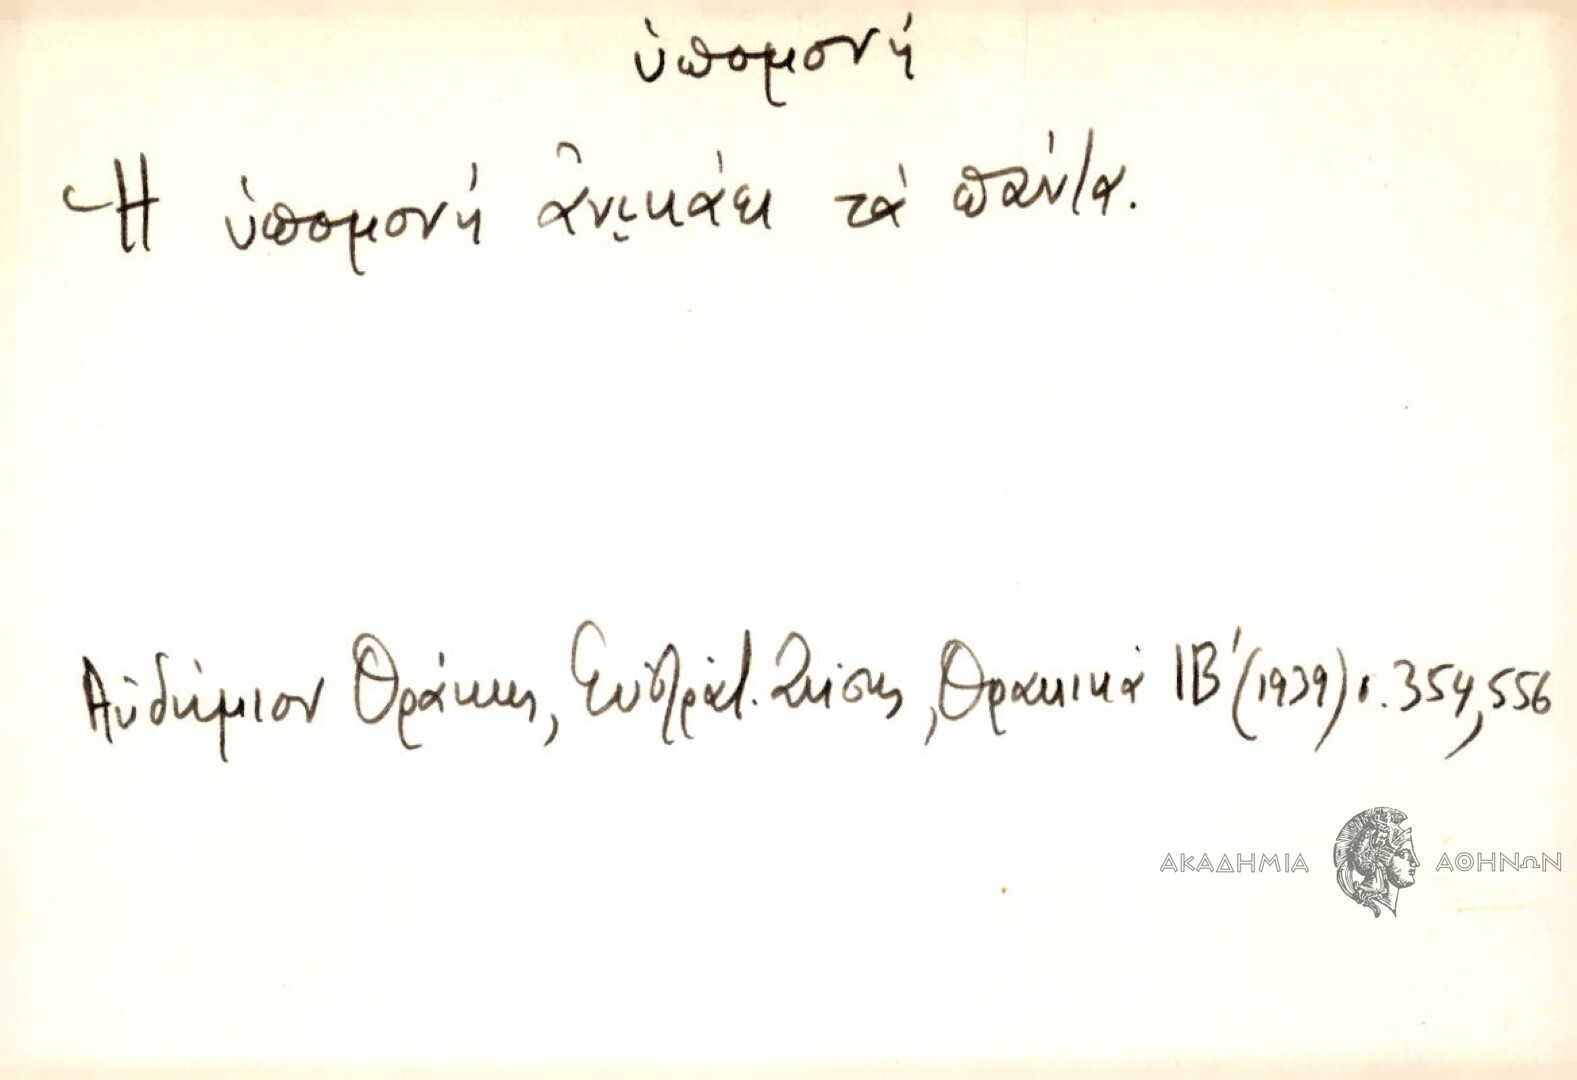 ὑπομονή
Ἡ ὑπομονή ἀνικάει τά πάντα.
Αὐδήμιον Θράκης, Εὐστρατ. Ζήσης, Θρακικά ΙΒ΄ (1939) σ. 354, 556
ΑΚΑΔΗΜΙΑ ΑΘΗΝΩΝ